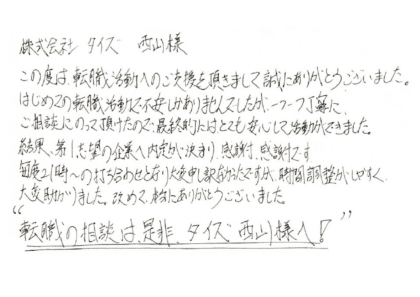 株式会社 タイズ 西山様
この度は、転職活動へのご支援を頂きまして誠にありがとうございました。
はじめての転職活動で不安しかありませんでしたが、一つ一つ丁寧に、
ご相談にのって頂けたので、最終的にはとても安心して活動ができました。
結果、第1志望の企業へ内定が決まり、感謝、感謝です
毎度21時〜の打ち合わせとなり大変申し訳なかったですが、時間調整がしやすく、
大変助かりました。改めて、本当にありがとうございました。
“転職の相談は、是非、タイズ 西山様へ!”